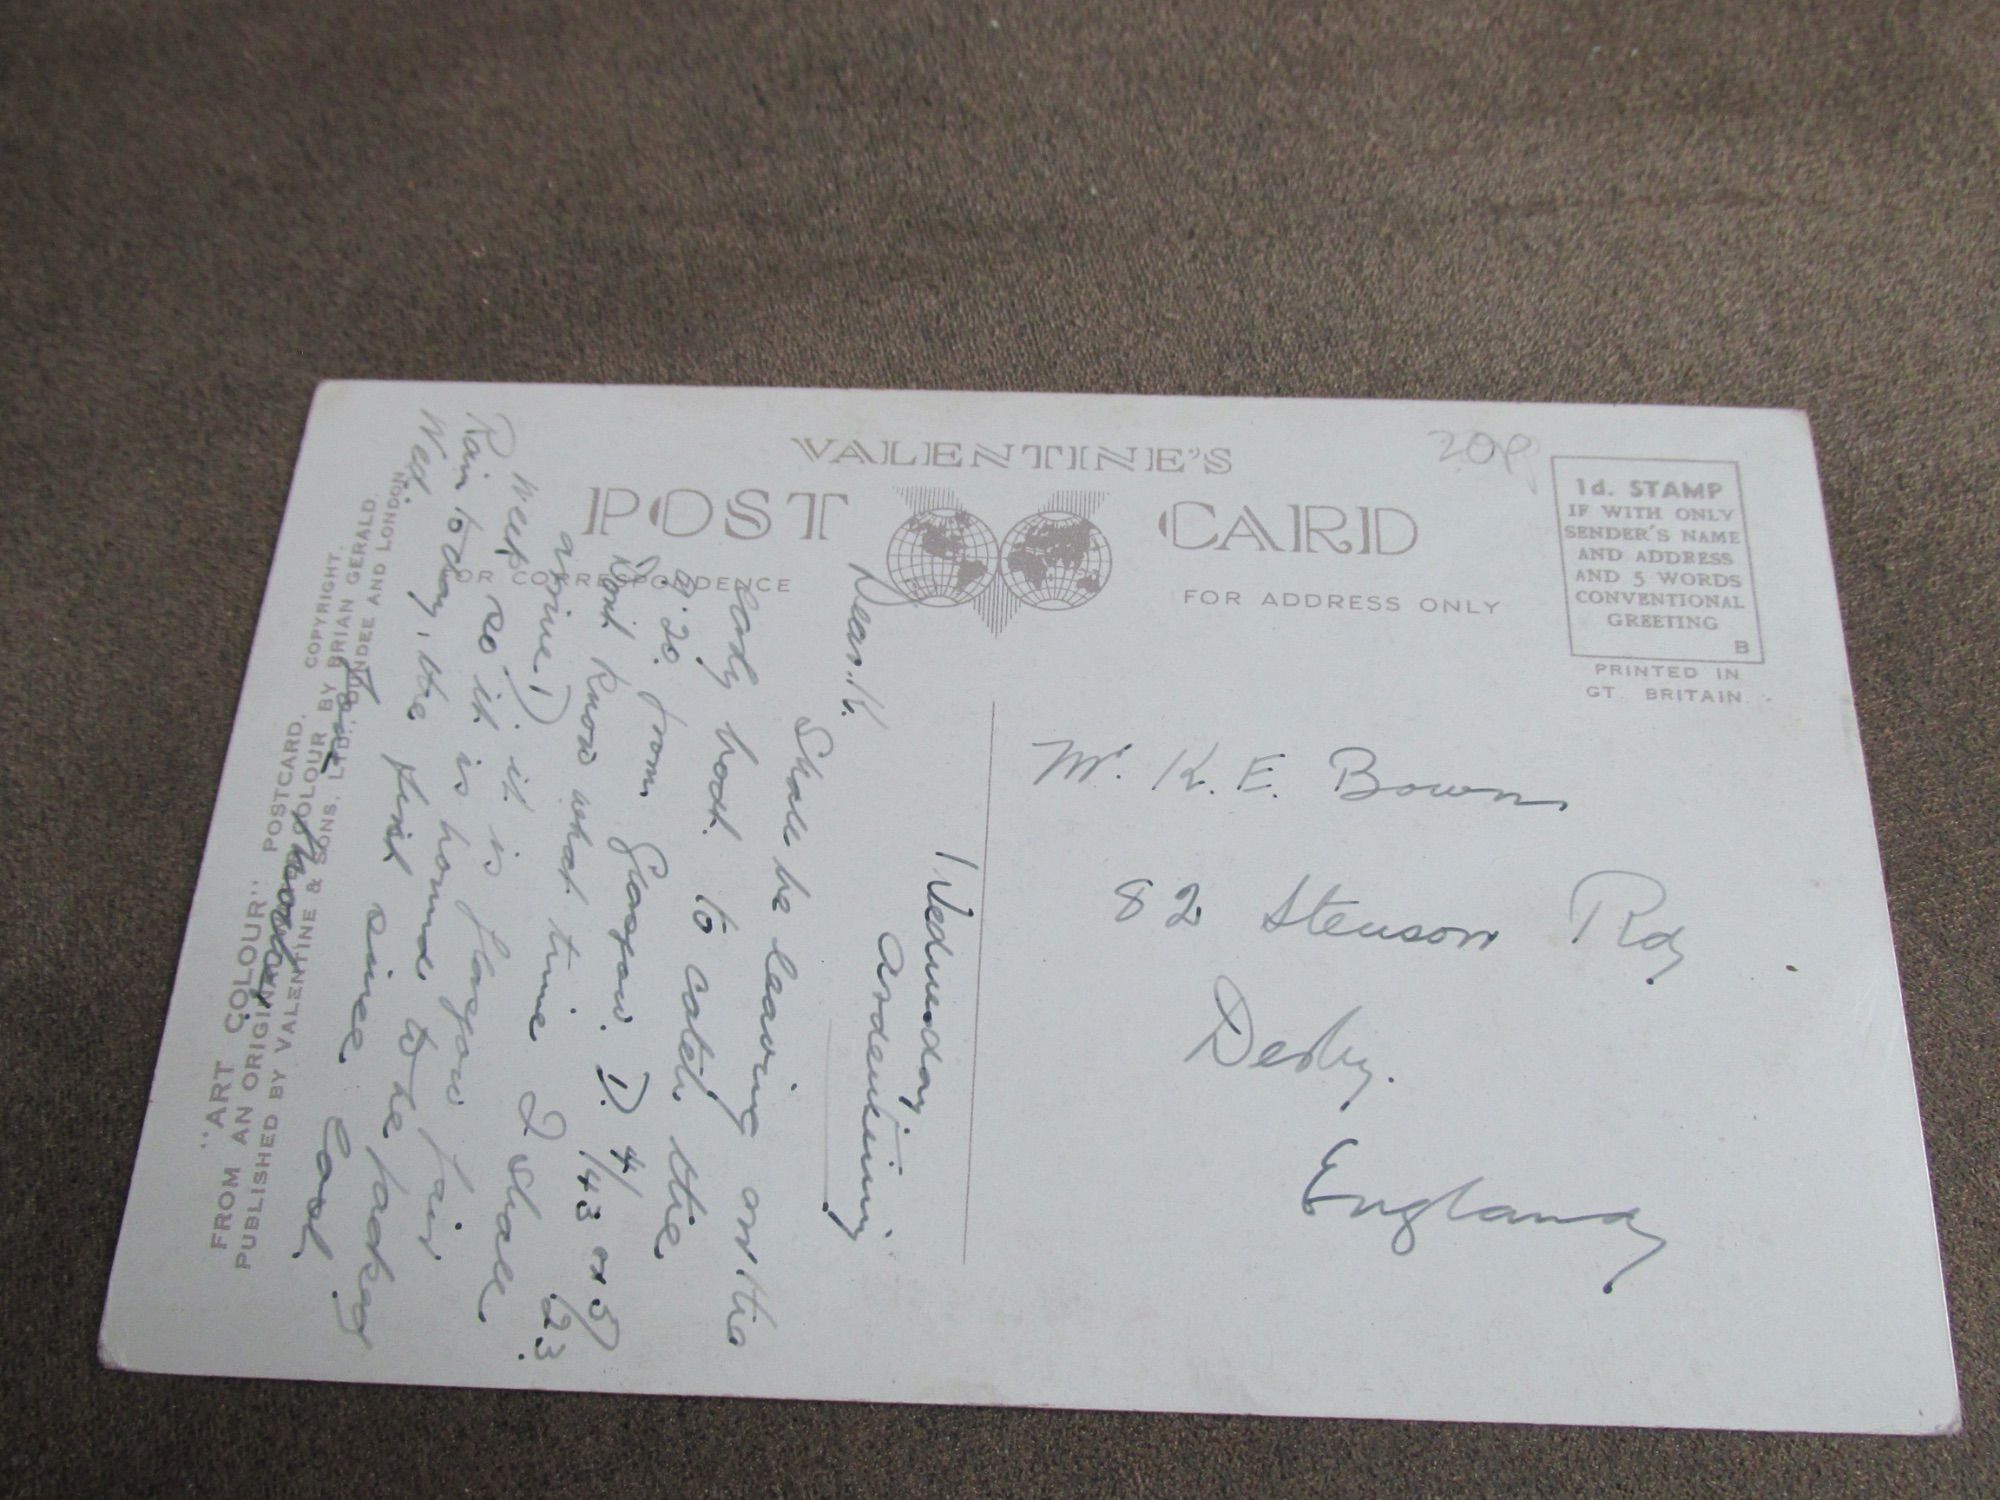 VALENTINE'S
POST CARD
FOR CORRESPONDENCE
FOR ADDRESS ONLY
20p
1d. STAMP
IF WITH ONLY
SENDER'S NAME
AND ADDRESS
AND 5 WORDS
CONVENTIONAL
GREETING
B
PRINTED IN
GT. BRITAIN
Mr. K. E. Bown
82 Stenson Rd,
Derby.
England,
Wednesday,
Ardentinny
Dear K.
Shall be leaving on the
early boat to catch the
9.20 from Glasgow. D. 4/43 or 5/23.
Dont know what time I shall
arrive. D; it is Glasgow fair
Week so it is bound to be packed
Rain today, the first since last
Wed.
"ART COLOUR" POSTCARD. COPYRIGHT.
FROM AN ORIGINAL COLOUR BY BRIAN GERALD.
PUBLISHED BY VALENTINE & SONS, LTD., DUNDEE AND LONDON